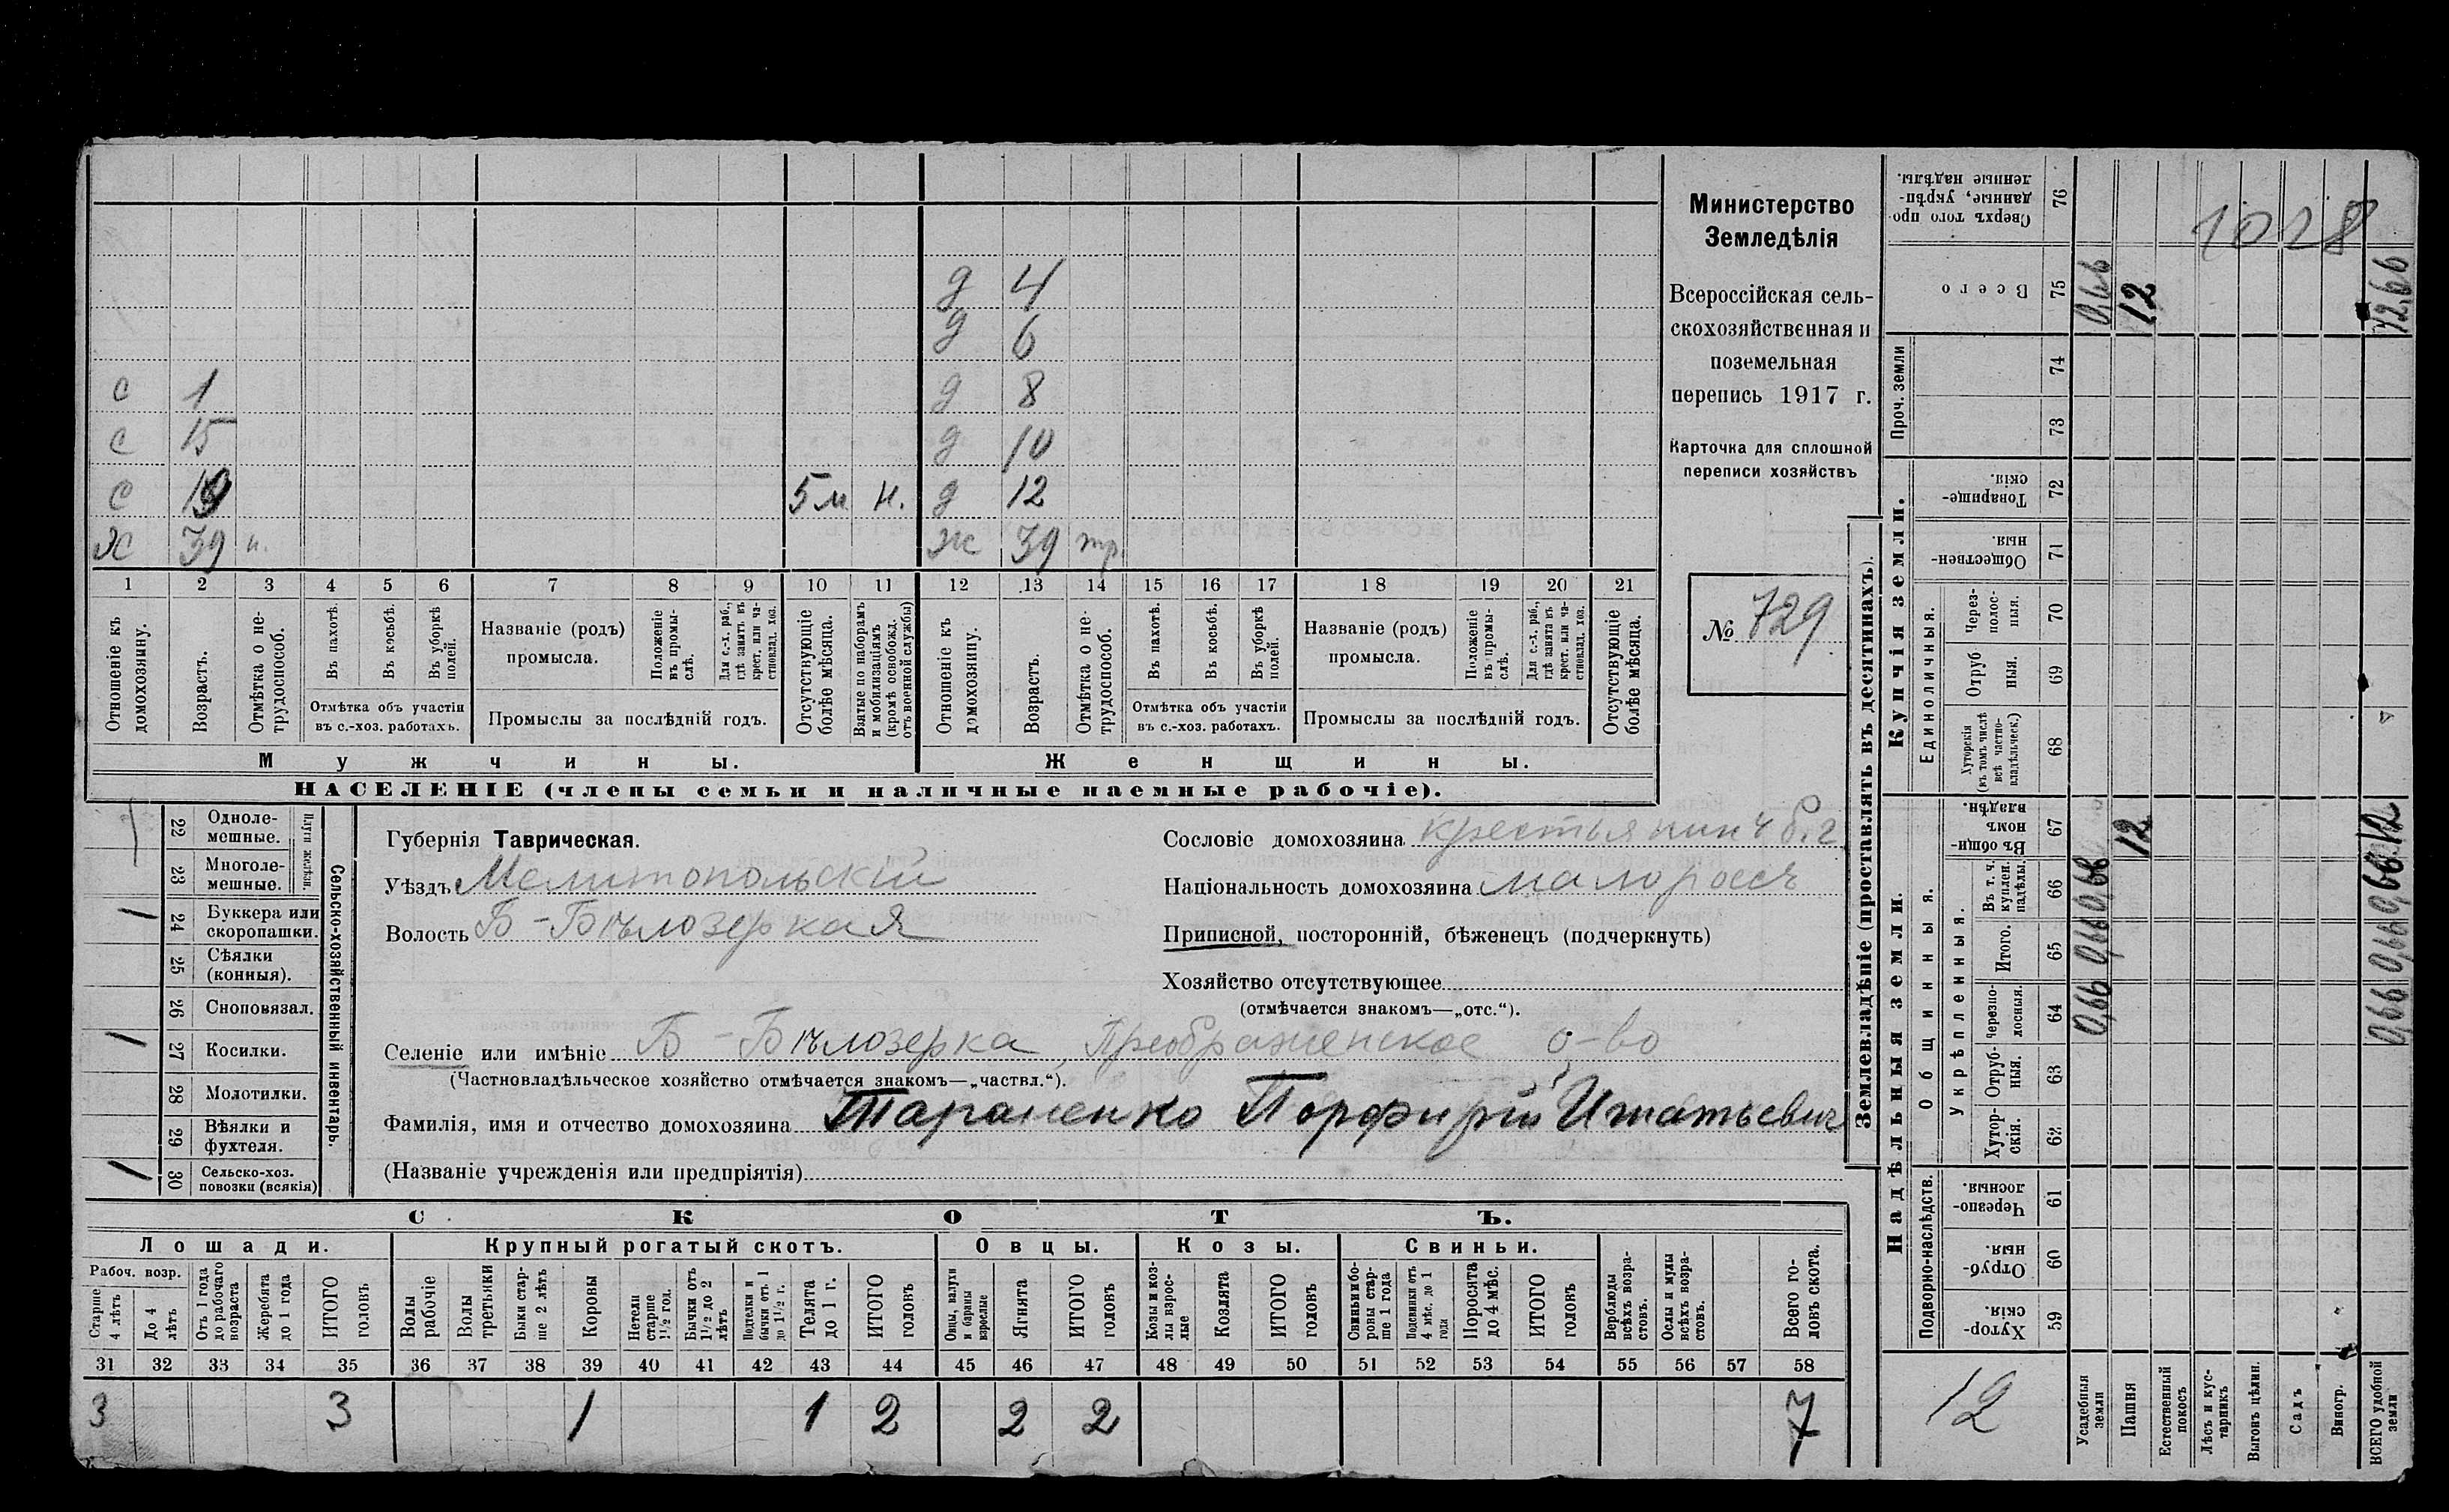 д 4
д 6
с 1 д 8
с 15 д 10
с 19 5 м н. д 12
Х 39 н. ж 39 тр.
1 2 3 4 5 6 7 8 9 10 11 12 13 14 15 16 17 18 19 20 21
Отношеніе къ домохозяину.
Возрастъ.
Отмѣтка о нетрудоспособ.
Въ пахотѣ.
Въ косьбѣ.
Въ уборкѣ полей.
Отмѣтка объ участіи
въ с.-хоз. работахъ.
Названіе (родъ)
промысла.
Положеніе въ промыслѣ.
Для с.-х. раб., гдѣ занятъ въ крест. или частновлад. хоз.
Промыслы за послѣдній годъ.
Отсутствующіе болѣе мѣсяца.
Взятые по наборамъ и мобилизаціямъ (кромѣ освобожд. отъ военной службы)
Отношеніе къ домохозяину.
Возрастъ.
Отмѣтка о нетрудоспособ.
Въ пахотѣ.
Въ косьбѣ.
Въ уборкѣ полей.
Отмѣтка объ участіи
въ с.-хоз. работахъ.
Названіе (родъ)
промысла.
Положеніе въ промыслѣ.
Для с.-х. раб., гдѣ занята въ крест. или частновлад. хоз.
Промыслы за послѣдній годъ.
Отсутствующіе болѣе мѣсяца.
Мужчины. Женщины.
НАСЕЛЕНІЕ (члены семьи и наличные наемные рабочіе).
Министерство
Земледѣлія
Всероссійская сель-
скохозяйственная и
поземельная
перепись 1917 г.
Карточка для сплошной
переписи хозяйствъ
№ 729
22 Одноле-
мешные.
23 Многоле-
мешные.
Плуги желѣзн.
1 24 Буккера или
скоропашки.
25 Сѣялки
(конныя).
26 Сноповязал.
1 27 Косилки.
28 Молотилки.
29 Вѣялки и
фухтеля.
1 30 Сельско-хоз.
повозки (всякія)
Сельско-хозяйственный инвентарь.
Губернія Таврическая.
Уѣздъ Мелитопольскій
Волость Б-Бѣлозеркая
Сословіе домохозяина крестьянин
Національность домохозяина малоросс
Приписной, посторонній, бѣженецъ (подчеркнуть)
Хозяйство отсутствующее
(отмѣчается знакомъ—„отс.“).
Селеніе или имѣніе Б-Бѣлозерка, Преображенское о-во
(Частновладѣльческое хозяйство отмѣчается знакомъ—„частвл.“).
Фамилія, имя и отчество домохозяина Тараненко Порфирій Игнатьевич
(Названіе учрежденія или предпріятія)
СКОТЪ.
Лошади. Крупный рогатый скотъ. Овцы. Козы. Свиньи.
Рабоч. возр.
Старше 4 лѣтъ
До 4 лѣтъ
Отъ 1 года до рабочаго возраста
Жеребята до 1 года
ИТОГО головъ
Волы рабочіе
Волы третьяки
Быки старше 2 лѣтъ
Коровы
Нетели старше 1½ год.
Бычки отъ 1½ до 2 лѣтъ
Подтелки и бычки отъ 1 до 1½ г.
Телята до 1 г.
ИТОГО головъ
Овцы, валухи и бараны взрослые
Ягнята
ИТОГО головъ
Козы и козлы взрослые
Козлята
ИТОГО головъ
Свиньи и боровы старше 1 года
Подсвинки отъ 4 мѣс. до 1 года
Поросята до 4 мѣс.
ИТОГО головъ
Верблюды всѣхъ возрастовъ.
Ослы и мулы всѣхъ возрастовъ.
Всего головъ скота.
31 32 33 34 35 36 37 38 39 40 41 42 43 44 45 46 47 48 49 50 51 52 53 54 55 56 57 58
3 3 1 1 2 2 2 7
Землевладѣніе (проставлять въ десятинахъ).
Сверхъ того проданные, укрѣпленные надѣлы. 76
1028
Всего 75 0,66 12 12,66
Проч. земли 74
73
Купчія земли.
Товарищескія. 72
Общественныя. 71
Единоличныя.
Черезполосныя. 70
Отрубныя. 69
Хуторскія (въ томъ числѣ всѣ частновладѣльческ.) 68
Надѣльныя земли.
Общинныя.
Въ общинномъ владѣн. 67 12 12
Укрѣпленныя.
Въ т. ч. куплен. надѣлы. 66 0,66 0,66
Итого. 65 0,66 0,66
Черезполосныя. 64 0,66 0,66
Отрубныя. 63
Хуторскія. 62
Подворно-наслѣдств.
Черезполосныя. 61
Отрубныя. 60
Хуторскія. 59
12
Усадебныя земли
Пашня
Естественный покосъ
Лѣсъ и кустарникъ
Выгонъ цѣлин.
Садъ
Виногр.
ВСЕГО удобной земли